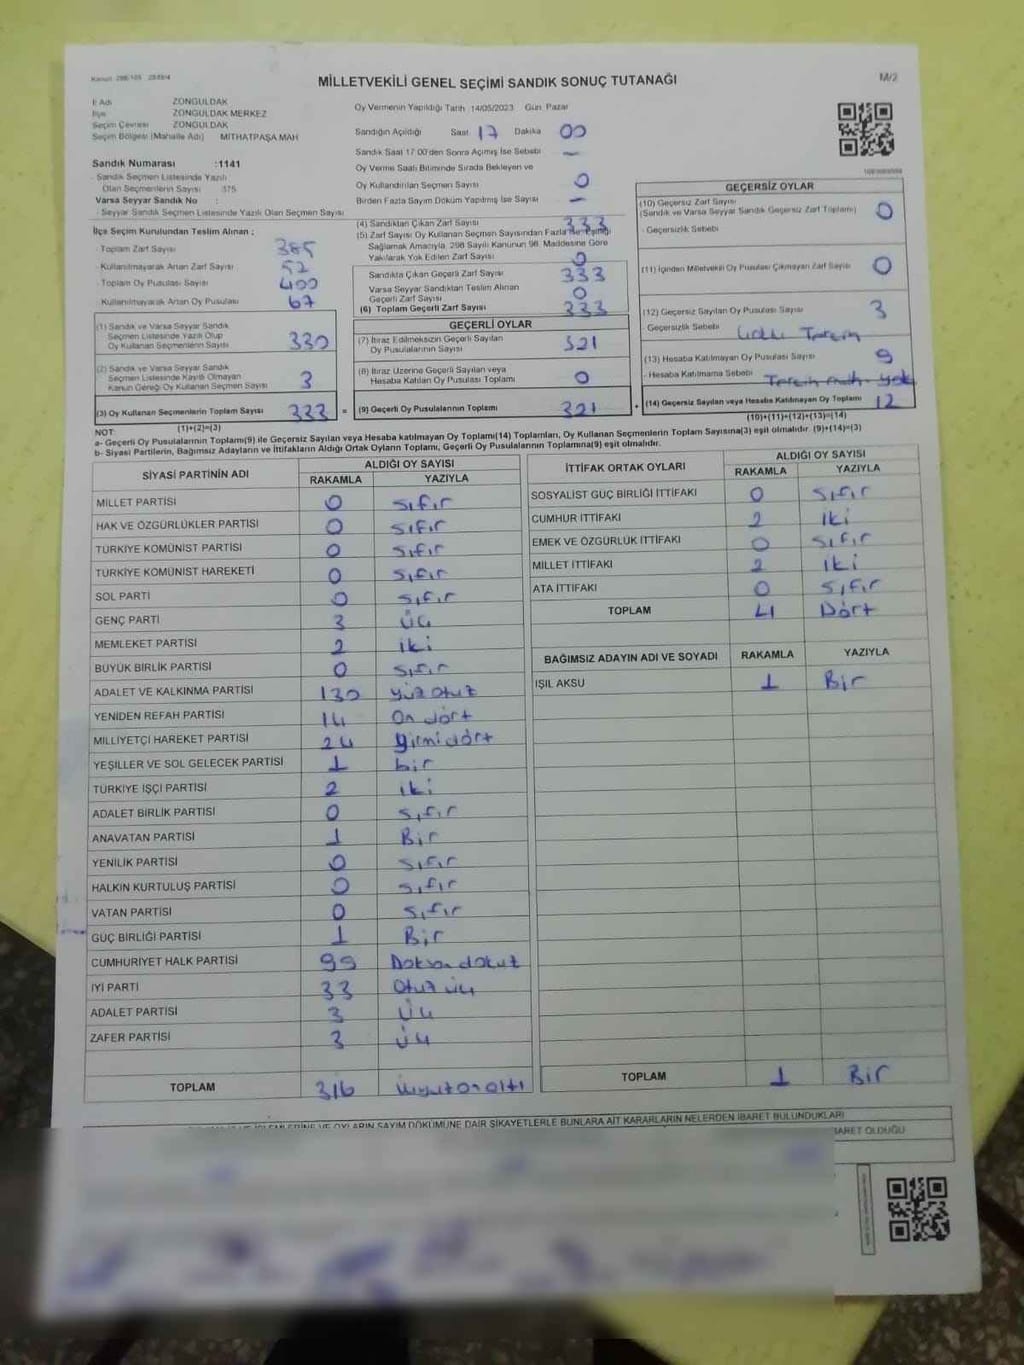 MİLLETVEKİLİ GENEL SEÇİMİ SANDIK SONUÇ TUTANAĞI
M/2
İl Adı ZONGULDAK
İlçe ZONGULDAK MERKEZ
Seçim Çevresi ZONGULDAK
Seçim Bölgesi (Mahalle Adı) MİTHATPAŞA MAH
Sandık Numarası :1141
- Sandık Seçmen Listesinde Yazılı
Olan Seçmenlerin Sayısı 375
Varsa Seyyar Sandık No :
- Seyyar Sandık Seçmen Listesinde Yazılı Olan Seçmen Sayısı
İlçe Seçim Kurulundan Teslim Alınan ;
- Toplam Zarf Sayısı 385
- Kullanılmayarak Artan Zarf Sayısı 52
- Toplam Oy Pusulası Sayısı 400
- Kullanılmayarak Artan Oy Pusulası 67
(1) Sandık ve Varsa Seyyar Sandık
Seçmen Listesinde Yazılı Olup
Oy Kullanan Seçmenlerin Sayısı 330
(2) Sandık ve Varsa Seyyar Sandık
Seçmen Listesinde Kayıtlı Olmayan
Kanun Gereği Oy Kullanan Seçmen Sayısı 3
(3) Oy Kullanan Seçmenlerin Toplam Sayısı 333 =
(1)+(2)=(3)
Oy Vermenin Yapıldığı Tarih 14/05/2023 Gün Pazar
Sandığın Açıldığı Saat 17 Dakika 00
Sandık Saat 17:00'den Sonra Açımış İse Sebebi —
Oy Verme Saati Bitiminde Sırada Bekleyen ve
Oy Kullandırılan Seçmen Sayısı 0
Birden Fazla Sayım Döküm Yapılmış İse Sayısı —
(4) Sandıktan Çıkan Zarf Sayısı 333
(5) Zarf Sayısı Oy Kullanan Seçmen Sayısından Fazla İse Eşitliği
Sağlamak Amacıyla, 298 Sayılı Kanunun 98. Maddesine Göre
Yakılarak Yok Edilen Zarf Sayısı 0
Sandıkta Çıkan Geçerli Zarf Sayısı 333
Varsa Seyyar Sandıktan Teslim Alınan
Geçerli Zarf Sayısı 0
(6) Toplam Geçerli Zarf Sayısı 333
GEÇERLİ OYLAR
(7) İtiraz Edilmeksizin Geçerli Sayılan
Oy Pusulalarının Sayısı 321
(8) İtiraz Üzerine Geçerli Sayılan veya
Hesaba Katılan Oy Pusulası Toplamı 0
(9) Geçerli Oy Pusulalarının Toplamı 321 +
GEÇERSİZ OYLAR
(10) Geçersiz Zarf Sayısı
(Sandık ve Varsa Seyyar Sandık Geçersiz Zarf Toplamı) 0
- Geçersizlik Sebebi
(11) İçinden Milletvekili Oy Pusulası Çıkmayan Zarf Sayısı 0
(12) Geçersiz Sayılan Oy Pusulası Sayısı 3
- Geçersizlik Sebebi
(13) Hesaba Katılmayan Oy Pusulası Sayısı 9
- Hesaba Katılmama Sebebi
(14) Geçersiz Sayılan veya Hesaba Katılmayan Oy Toplamı 12
(10)+(11)+(12)+(13)=(14)
NOT:
a- Geçerli Oy Pusulalarının Toplamı(9) ile Geçersiz Sayılan veya Hesaba katılmayan Oy Toplamı(14) Toplamları, Oy Kullanan Seçmenlerin Toplam Sayısına(3) eşit olmalıdır. (9)+(14)=(3)
b- Siyasi Partilerin, Bağımsız Adayların ve İttifakların Aldığı Ortak Oyların Toplamı, Geçerli Oy Pusulalarının Toplamına(9) eşit olmalıdır.
SİYASİ PARTİNİN ADI ALDIĞI OY SAYISI
RAKAMLA YAZIYLA
MİLLET PARTİSİ 0 sıfır
HAK VE ÖZGÜRLÜKLER PARTİSİ 0 sıfır
TÜRKİYE KOMÜNİST PARTİSİ 0 sıfır
TÜRKİYE KOMÜNİST HAREKETİ 0 sıfır
SOL PARTİ 0 sıfır
GENÇ PARTİ 3 üç
MEMLEKET PARTİSİ 2 iki
BÜYÜK BİRLİK PARTİSİ 0 sıfır
ADALET VE KALKINMA PARTİSİ 130 yüz otuz
YENİDEN REFAH PARTİSİ 14 On dört
MİLLİYETÇİ HAREKET PARTİSİ 24 yirmi dört
YEŞİLLER VE SOL GELECEK PARTİSİ 1 bir
TÜRKİYE İŞÇİ PARTİSİ 2 iki
ADALET BİRLİK PARTİSİ 0 sıfır
ANAVATAN PARTİSİ 1 Bir
YENİLİK PARTİSİ 0 sıfır
HALKIN KURTULUŞ PARTİSİ 0 sıfır
VATAN PARTİSİ 0 sıfır
GÜÇ BİRLİĞİ PARTİSİ 1 Bir
CUMHURİYET HALK PARTİSİ 99 Doksan dokuz
İYİ PARTİ 33 Otuz üç
ADALET PARTİSİ 3 üç
ZAFER PARTİSİ 3 üç
TOPLAM 316 üçyüz on altı
İTTİFAK ORTAK OYLARI ALDIĞI OY SAYISI
RAKAMLA YAZIYLA
SOSYALİST GÜÇ BİRLİĞİ İTTİFAKI 0 sıfır
CUMHUR İTTİFAKI 2 iki
EMEK VE ÖZGÜRLÜK İTTİFAKI 0 sıfır
MİLLET İTTİFAKI 2 iki
ATA İTTİFAKI 0 sıfır
TOPLAM 4 Dört
BAĞIMSIZ ADAYIN ADI VE SOYADI RAKAMLA YAZIYLA
IŞIL AKSU 1 Bir
TOPLAM 1 Bir
VE OYLARIN SAYIM DÖKÜMÜNE DAİR ŞİKAYETLERLE BUNLARA AİT KARARLARIN NELERDEN İBARET BULUNDUKLARI
OLDUĞU